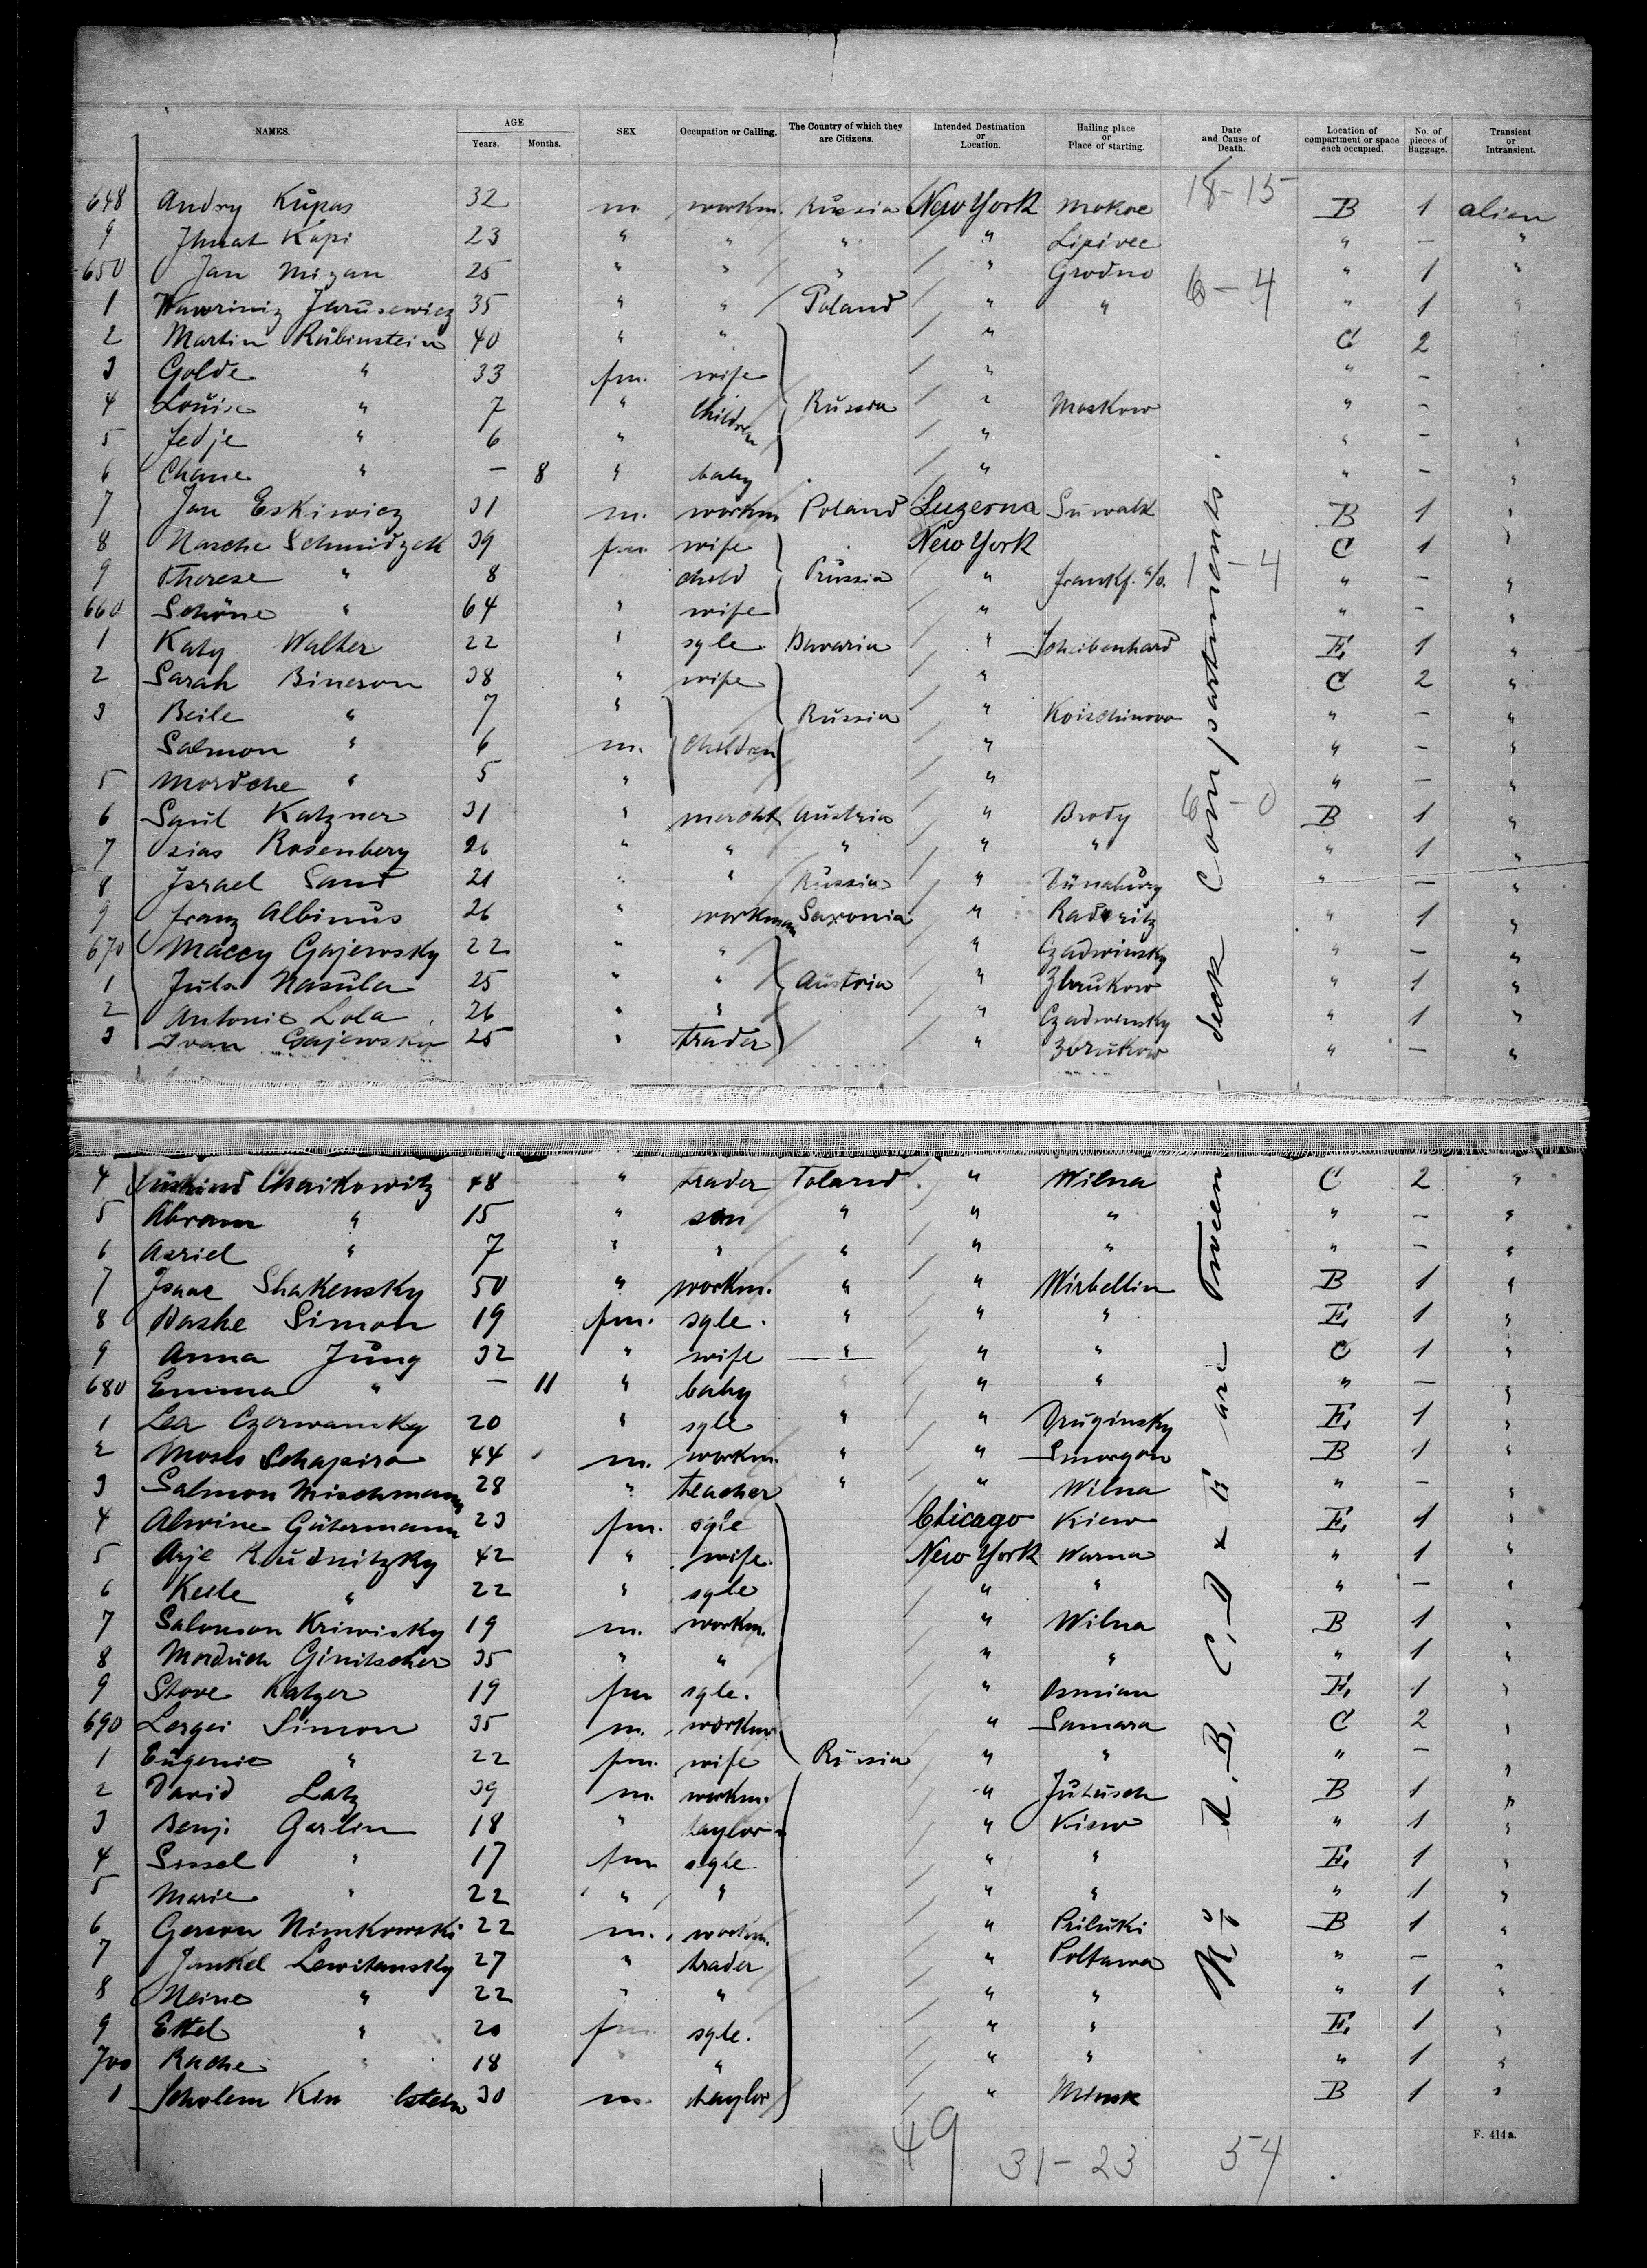 NAMES. AGE SEX Occupation or Calling. The Country of which they are Citizens. Intended Destination or Location. Hailing place or Place of starting. Date and Cause of Death. Location of compartment or space each occupied. No. of pieces of Baggage. Transient or Intransient.
Years. Months.
18-15
648 Andry Kupas 32 m. workm. Russia New York Mokre B 1 alien
9 Kapi 23 " " " " Lipivec " — "
650 Jan Mizan 25 " " " " Grodno " 1 "
6-4
1 35 " " Poland " " " 1 "
2 Martin Rubinstein 40 " " " C 2
3 Golde " 33 fm. wife " " —
4 Louise " 7 " Children Russia " Moskow " —
5 Jedje " 6 " " " — "
6 Chane " — 8 " baby " " — "
7 Jan Eskiwicz 31 m. workm Poland Luzerna Suwalk B 1 "
8 Nasche Schmidzek 39 fm. wife New York C 1 "
9 Therese " 8 child Prussia " Frankf. a/o. " — "
1-4
660 Schöne " 64 " wife " " — "
1 Katy Walter 22 " sgle Bavaria " Scheibenhard E. 1 "
2 Sarah Bineron 38 " wife " C 2 "
3 Beile " 7 " Russia " Koischinova " — "
Salmon " 6 m. children " " — "
5 Mordche " 5 " " " — "
6 Saul Katzner 31 " Austria " Brody B 1 "
6-0
7 Rosenberg 26 " " " " " " 1 "
8 Israel Sand 21 " " Russia " Dünaburg " — "
9 Franz Albinus 26 " workman Saxonia " " 1 "
670 Maccy Gajewsky 22 " " " Czadwinsky " — "
1 Nasula 25 " " Austria " " 1 "
2 Antonie Lola 26 " " " Czadwinsky " 1 "
3 Ivan Gajewsky 25 " trader " " — "
4 Chaikowitz 48 " trader Poland " Wilna C 2 "
5 Abram " 15 " son " " " " — "
6 Asriel " 7 " " " " " " — "
7 Isaac Shakensky 50 " workm. " " Wirbellin B 1 "
8 Simon 19 fm. sgle. " " " E. 1 "
9 Anna Jung 32 " wife " " " C 1 "
680 Emma " — 11 " baby " " " " — "
1 Lea Czerwansky 20 " sgle " " Druginsky E. 1 "
2 Moses Schapiro 44 m. workm. " " Smorgon B 1 "
3 Salmon Mischmann 28 " teacher " " Wilna " — "
4 Alwine Gütermann 23 fm. sgle Chicago Kiew E. 1 "
5 Arje Rudnitzky 42 " wife. New York Warna " 1 "
6 Keile " 22 " sgle " " " — "
7 Salomon Kriwisky 19 m. workm. " Wilna B 1 "
8 Morduch Ginitscher 35 " " " " " 1 "
9 Stove Katzer 19 fm sgle. " Osmian E. 1 "
690 Sergei Simon 35 m. workm. " Samara C 2 "
1 Eugenie " 22 fm. wife Russia " " " — "
2 David Latz 39 m. workm. " B 1 "
3 Benj. Garlin 18 " taylor " Kiew " 1 "
4 Sissel " 17 fm sgle. " " E. 1 "
5 Marie " 22 " " " " " 1 "
6 Gerson Nimkowski 22 m. workm. " Priluki B 1 "
7 Jankel Lewitansky 27 " trader " Poltawa " — "
8 Meine " 22 " " " " " 1 "
9 Ettel " 20 fm. sgle. " " E. 1 "
700 Rache " 18 " " " " 1 "
1 Scholem 30 m. taylor " Minsk B 1 "
A. B, C, D & E are Tween deck Compartments.
F. 414a.
49 31-23 54